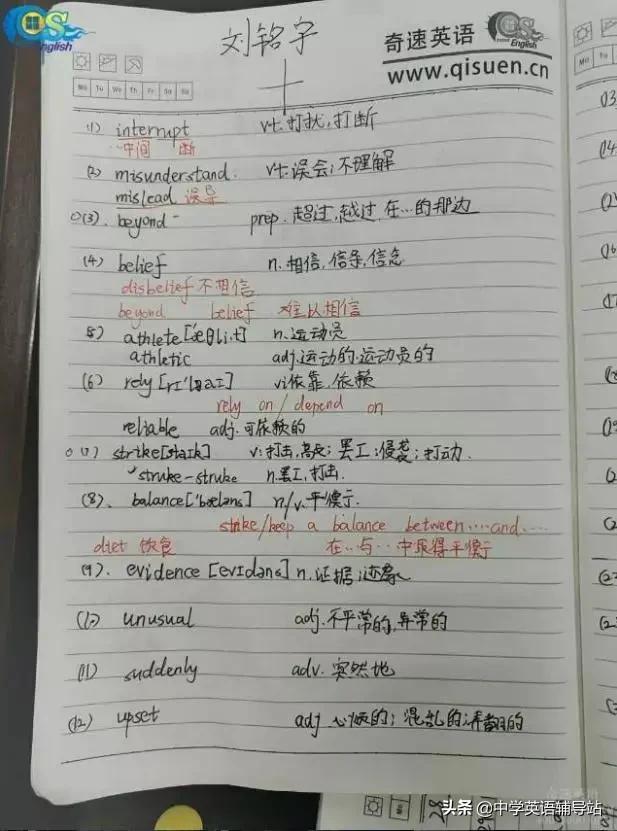 CS English
刘铭宇
奇速英语
CS English
www.qisuen.cn
Mo Tu We Th Fr Sa Su
(1) interrupt vt.打扰,打断
…中间 断
(2) misunderstand. vt.误会;不理解
mislead 误导
(3). beyond prep.超过,越过,在…的那边
(4) belief n.相信,信条,信念
disbelief 不相信
beyond belief 难以相信
5) athlete n.运动员
athletic adj.运动的.运动员的
(6) rely vi依靠.依赖
rely on / depend on
reliable adj.可依赖的
(7) strike v.打击,罢工;侵袭;打动.
struke-struke n.罢工,打击.
(8). balance n/v.平衡
strike/keep a balance between……and……
diet 饮食 在…与…中取得平衡
(9). evidence n.证据;迹象
(10) unusual adj.不平常的,异常的
(11) suddenly adv.突然地
(12) upset adj 心烦的;混乱的;弄翻的
头条 @中学英语辅导站